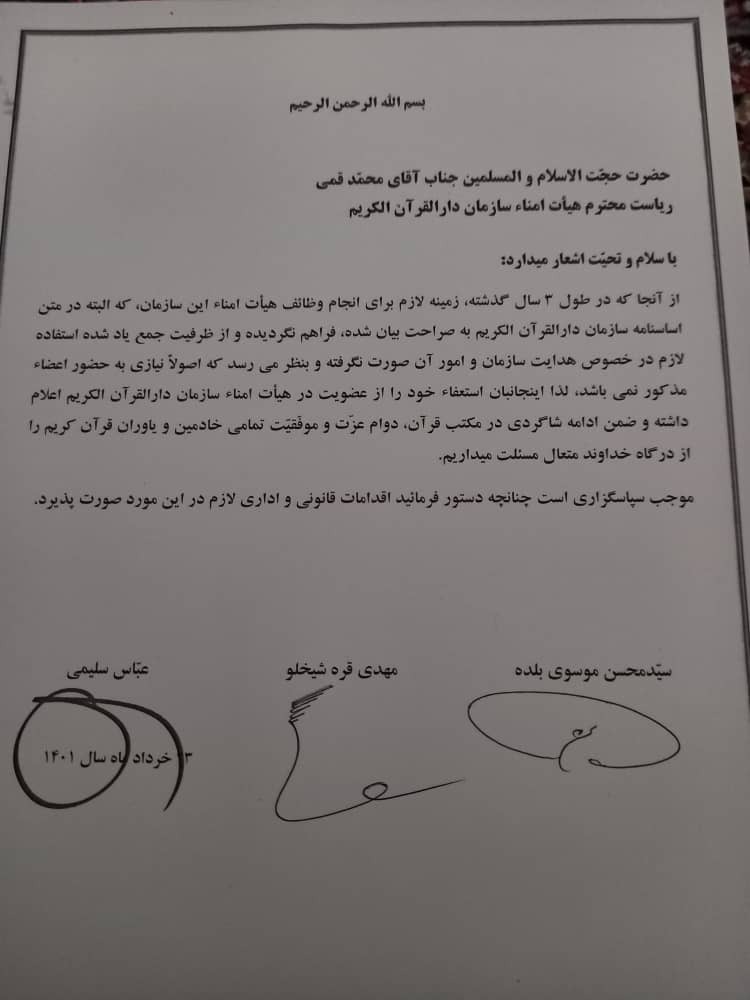 بسم الله الرحمن الرحیم
حضرت حجّت الاسلام و المسلمین جناب آقای محمّد قمی
ریاست محترم هیأت امناء سازمان دارالقرآن الکریم
با سلام و تحیّت اشعار میدارد:
از آنجا که در طول ۳ سال گذشته، زمینه لازم برای انجام وظائف هیأت امناء این سازمان، که البته در متن
اساسنامه سازمان دارالقرآن الکریم به صراحت بیان شده، فراهم نگردیده و از ظرفیت جمع یاد شده استفاده
لازم در خصوص هدایت سازمان و امور آن صورت نگرفته و بنظر می رسد که اصولاً نیازی به حضور اعضاء
مذکور نمی باشد، لذا اینجانبان استعفاء خود را از عضویت در هیأت امناء سازمان دارالقرآن الکریم اعلام
داشته و ضمن ادامه شاگردی در مکتب قرآن، دوام عزّت و موفّقیّت تمامی خادمین و یاوران قرآن کریم را
از درگاه خداوند متعال مسئلت میداریم.
موجب سپاسگزاری است چنانچه دستور فرمائید اقدامات قانونی و اداری لازم در این مورد صورت پذیرد.
سیّدمحسن موسوی بلده مهدی قره شیخلو عبّاس سلیمی
خرداد ماه سال ۱۴۰۱